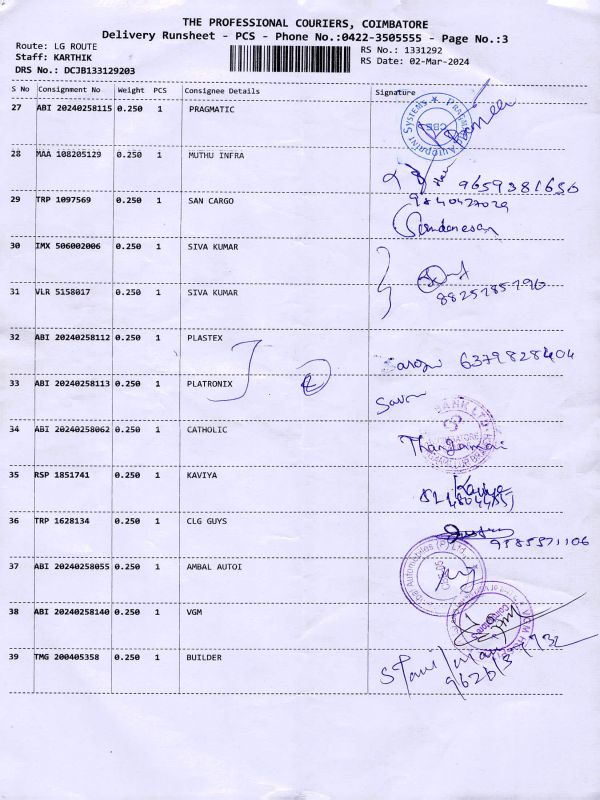 THE PROFESSIONAL COURIERS, COIMBATORE
Delivery Runsheet - PCS - Phone No.:0422-3505555 - Page No.:3
Route: LG ROUTE RS No.: 1331292
Staff: KARTHIK RS Date: 02-Mar-2024
DRS No.: DCJB133129203
S No Consignment No Weight PCS Consignee Details Signature
27 ABI 20240258115 0.250 1 PRAGMATIC
28 MAA 108205129 0.250 1 MUTHU INFRA
9659381656
29 TRP 1097569 0.250 1 SAN CARGO
9840427029
30 IMX 506002006 0.250 1 SIVA KUMAR
31 VLR 5158017 0.250 1 SIVA KUMAR
32 ABI 20240258112 0.250 1 PLASTEX
6379828404
33 ABI 20240258113 0.250 1 PLATRONIX
34 ABI 20240258062 0.250 1 CATHOLIC
35 RSP 1851741 0.250 1 KAVIYA
Kaviya
36 TRP 1628134 0.250 1 CLG GUYS
37 ABI 20240258055 0.250 1 AMBAL AUTOI
38 ABI 20240258140 0.250 1 VGM
39 TMG 200405358 0.250 1 BUILDER